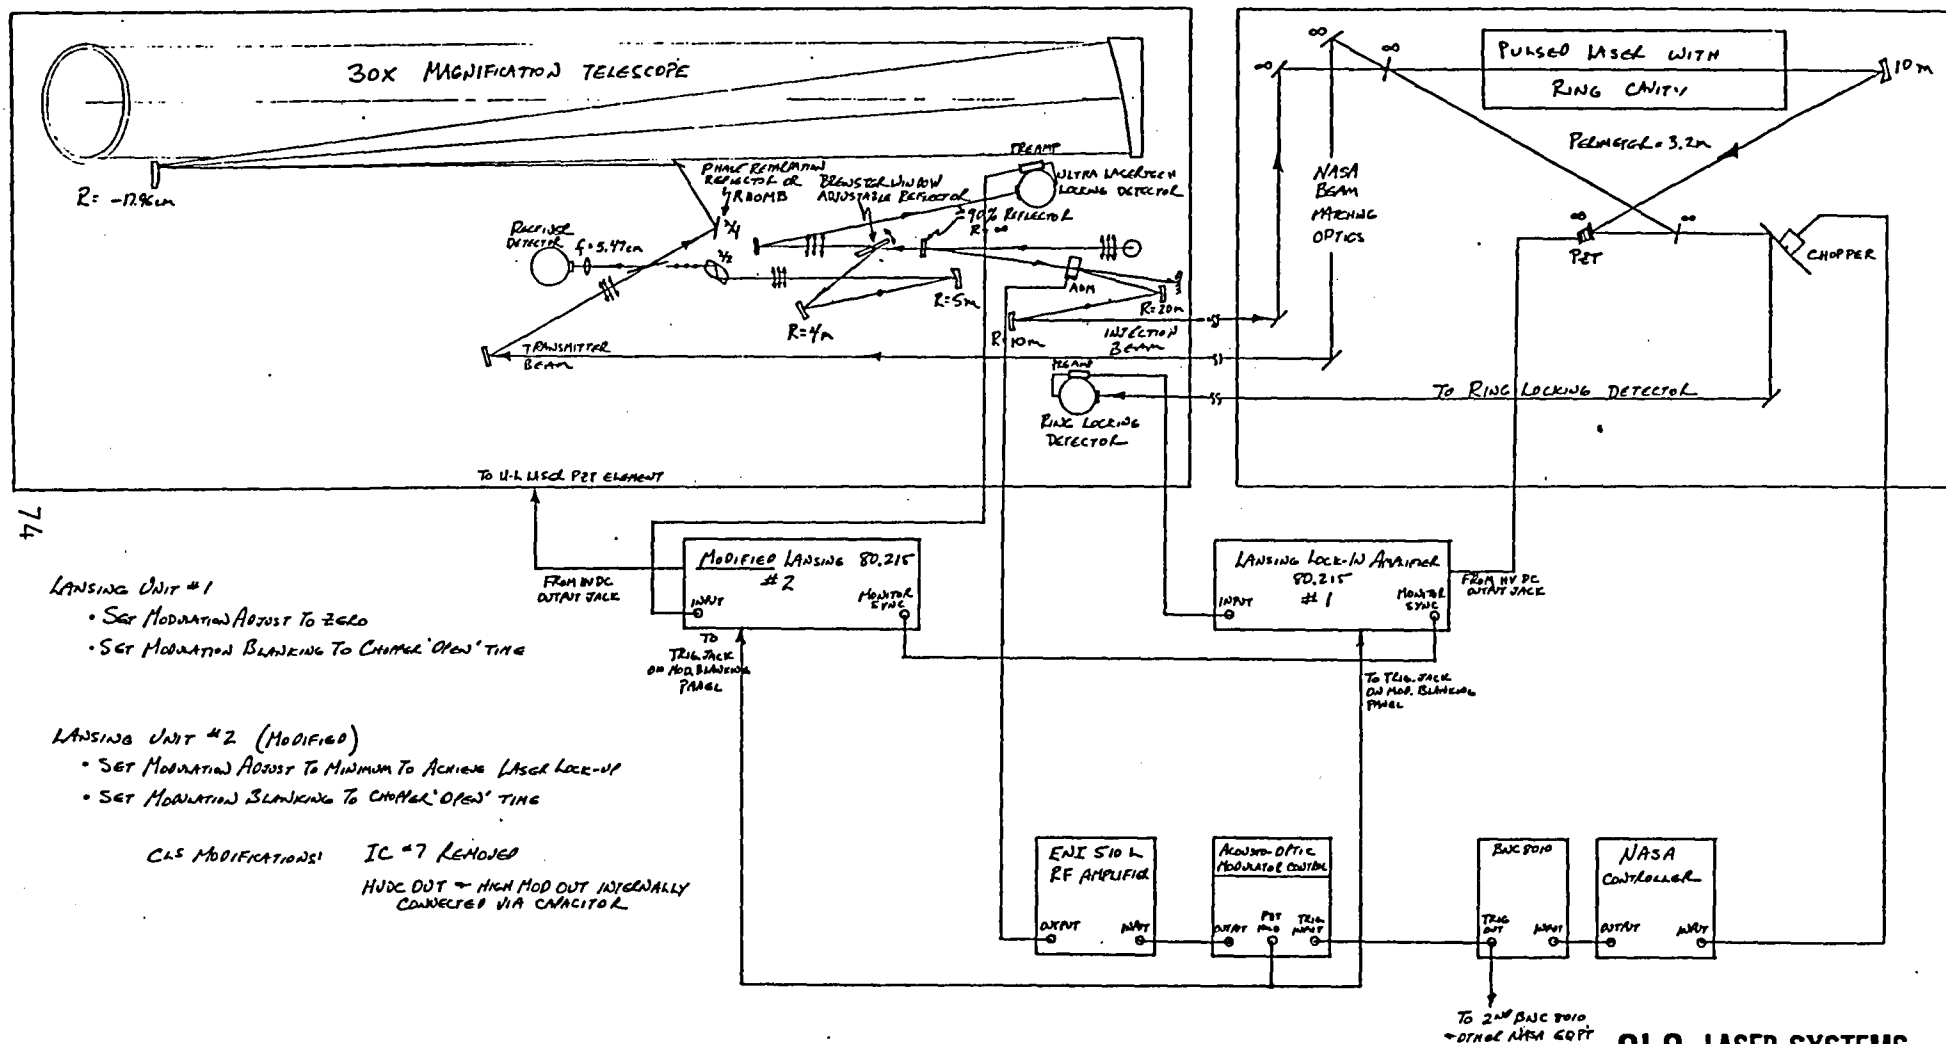 30X MAGNIFICATION TELESCOPE
R= -17.96cm
PHASE RETARDATION
REFLECTOR OR
RHOMB
λ/4
BREWSTER WINDOW
ADJUSTABLE REFLECTOR
PREAMP
ULTRA LASERTECH
LOCKING DETECTOR
≥90% REFLECTOR
R=∞
RECEIVER
DETECTOR
f=5.47cm
λ/2
R=5m
R=4m
AOM
R=20m
R=10m
INJECTION
BEAM
TRANSMITTER
BEAM
PREAMP
RING LOCKING
DETECTOR
TO U-L LASER PZT ELEMENT
∞
∞
∞
PULSED LASER WITH
RING CAVITY
10m
PERIMETER=3.2m
NASA
BEAM
MATCHING
OPTICS
∞
∞
PZT
CHOPPER
TO RING LOCKING DETECTOR
74
LANSING UNIT #1
• SET MODULATION ADJUST TO ZERO
• SET MODULATION BLANKING TO CHOPPER 'OPEN' TIME
LANSING UNIT #2 (MODIFIED)
• SET MODULATION ADJUST TO MINIMUM TO ACHIEVE LASER LOCK-UP
• SET MODULATION BLANKING TO CHOPPER 'OPEN' TIME
CLS MODIFICATIONS: IC #7 REMOVED
HVDC OUT + HIGH MOD OUT INTERNALLY
CONNECTED VIA CAPACITOR
FROM HVDC
OUTPUT JACK
MODIFIED LANSING 80.215
#2
INPUT
MONITOR
SYNC
TO
TRIG. JACK
ON MOD. BLANKING
PANEL
LANSING LOCK-IN AMPLIFIER
80.215
#1
INPUT
MONITOR
SYNC
FROM HV DC
OUTPUT JACK
TO TRIG. JACK
ON MOD. BLANKING
PANEL
ENI 510 L
RF AMPLIFIER
OUTPUT
INPUT
ACOUSTO-OPTIC
MODULATOR CONTROL
OUTPUT
TRIG
INPUT
BNC 8010
TRIG
OUT
INPUT
NASA
CONTROLLER
OUTPUT
INPUT
TO 2ND BNC 8010
+ OTHER NASA EQPT
LASER SYSTEMS